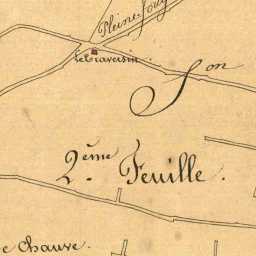 Pleine Fouy
le Traversin
Son
2ème Feuille.
e Chauve.